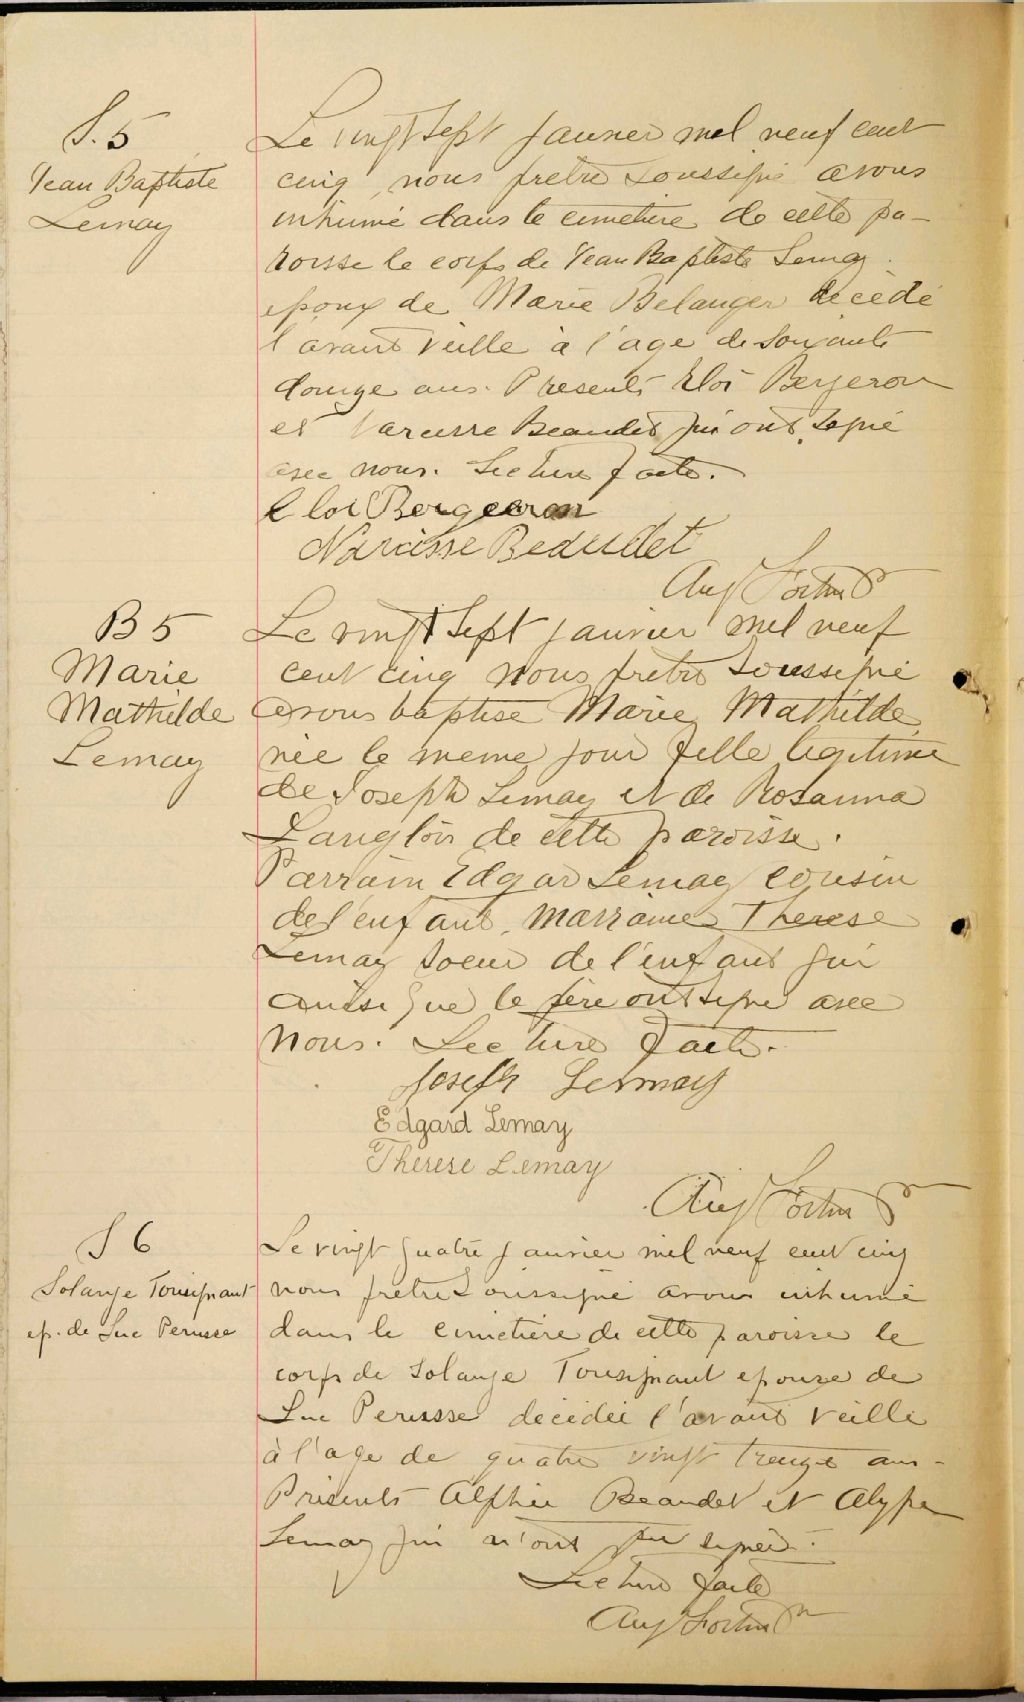 S. 5
Jean Baptiste
Lemay
Le vingt sept janvier mil neuf cent
cinq, nous pretre soussigné avons
inhumé dans le cimetiere de cette pa-
roisse le corps de Jean Baptiste Lemay
epoux de Marie Belanger decedé
l'avant veille à l'age de soixante
douze ans. Presents Eloi Bergeron
et Narcisse Beaudet qui ont signé
avec nous. Lecture faite.
Eloi Bergeron
Narcisse Beaudet
Aug Fortin Ptre
B 5
Marie
Mathilde
Lemay
Le vingt sept janvier mil neuf
cent cinq nous pretre soussigné
avons baptisé Marie Mathilde
née le meme jour fille legitime
de Joseph Lemay et de Rosanna
Langlois de cette paroisse.
Parrain Edgar Lemay cousin
de l'enfant, marraine Therese
Lemay soeur de l'enfant qui
ainsi que le père ont signé avec
nous. Lecture faite.
Joseph Lemay
Edgard Lemay
Therese Lemay
Aug Fortin Ptre
S 6
Solange Tousignant
ep. de Luc Perusse
Le vingt quatre janvier mil neuf cent cinq
nous pretre soussigné avons inhumé
dans le cimetière de cette paroisse le
corps de Solange Tousignant epouse de
Luc Perusse decedée l'avant veille
à l'age de quatre vingt treize ans-
Présents Alphée Beaudet et Alyre
Lemay qui n'ont pu signer.
Lecture faite
Aug Fortin Ptre